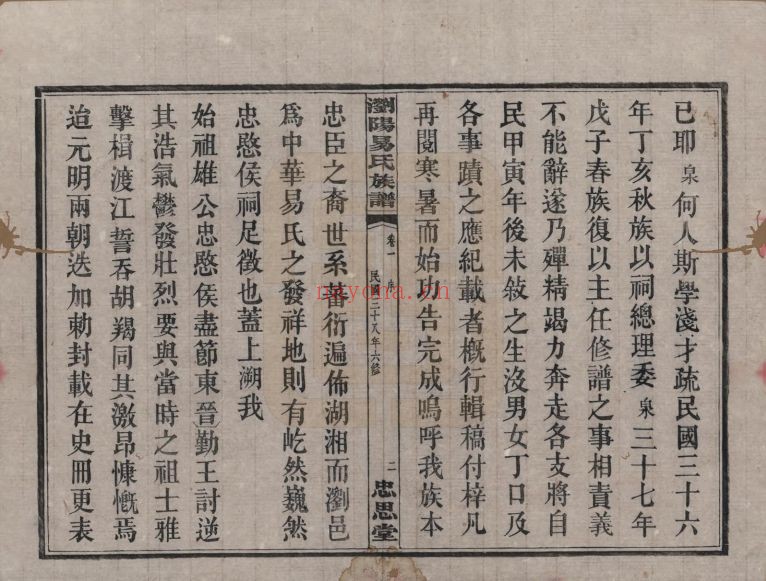 已耶泉何人斯學淺才疏民國三十六
年丁亥秋族以祠總理委泉三十七年
戊子春族復以主任修譜之事相責義
不能辭遂乃殫精竭力奔走各支將自
民甲寅年後未敍之生沒男女丁口及
各事蹟之應紀載者概行輯稿付梓凡
再閱寒暑而始功告完成嗚呼我族本
瀏陽易氏族譜
卷一
序
民國三十八年六修
二
忠思堂
忠臣之裔世系蕃衍遍佈湖湘而瀏邑
爲中華易氏之發祥地則有屹然巍然
忠愍侯祠足徵也蓋上溯我
始祖雄公忠愍侯盡節東晉勤王討逆
其浩氣鬱發壯烈要與當時之祖士雅
擊楫渡江誓吞胡羯同其激昂慷慨焉
迨元明兩朝迭加勅封載在史冊更表